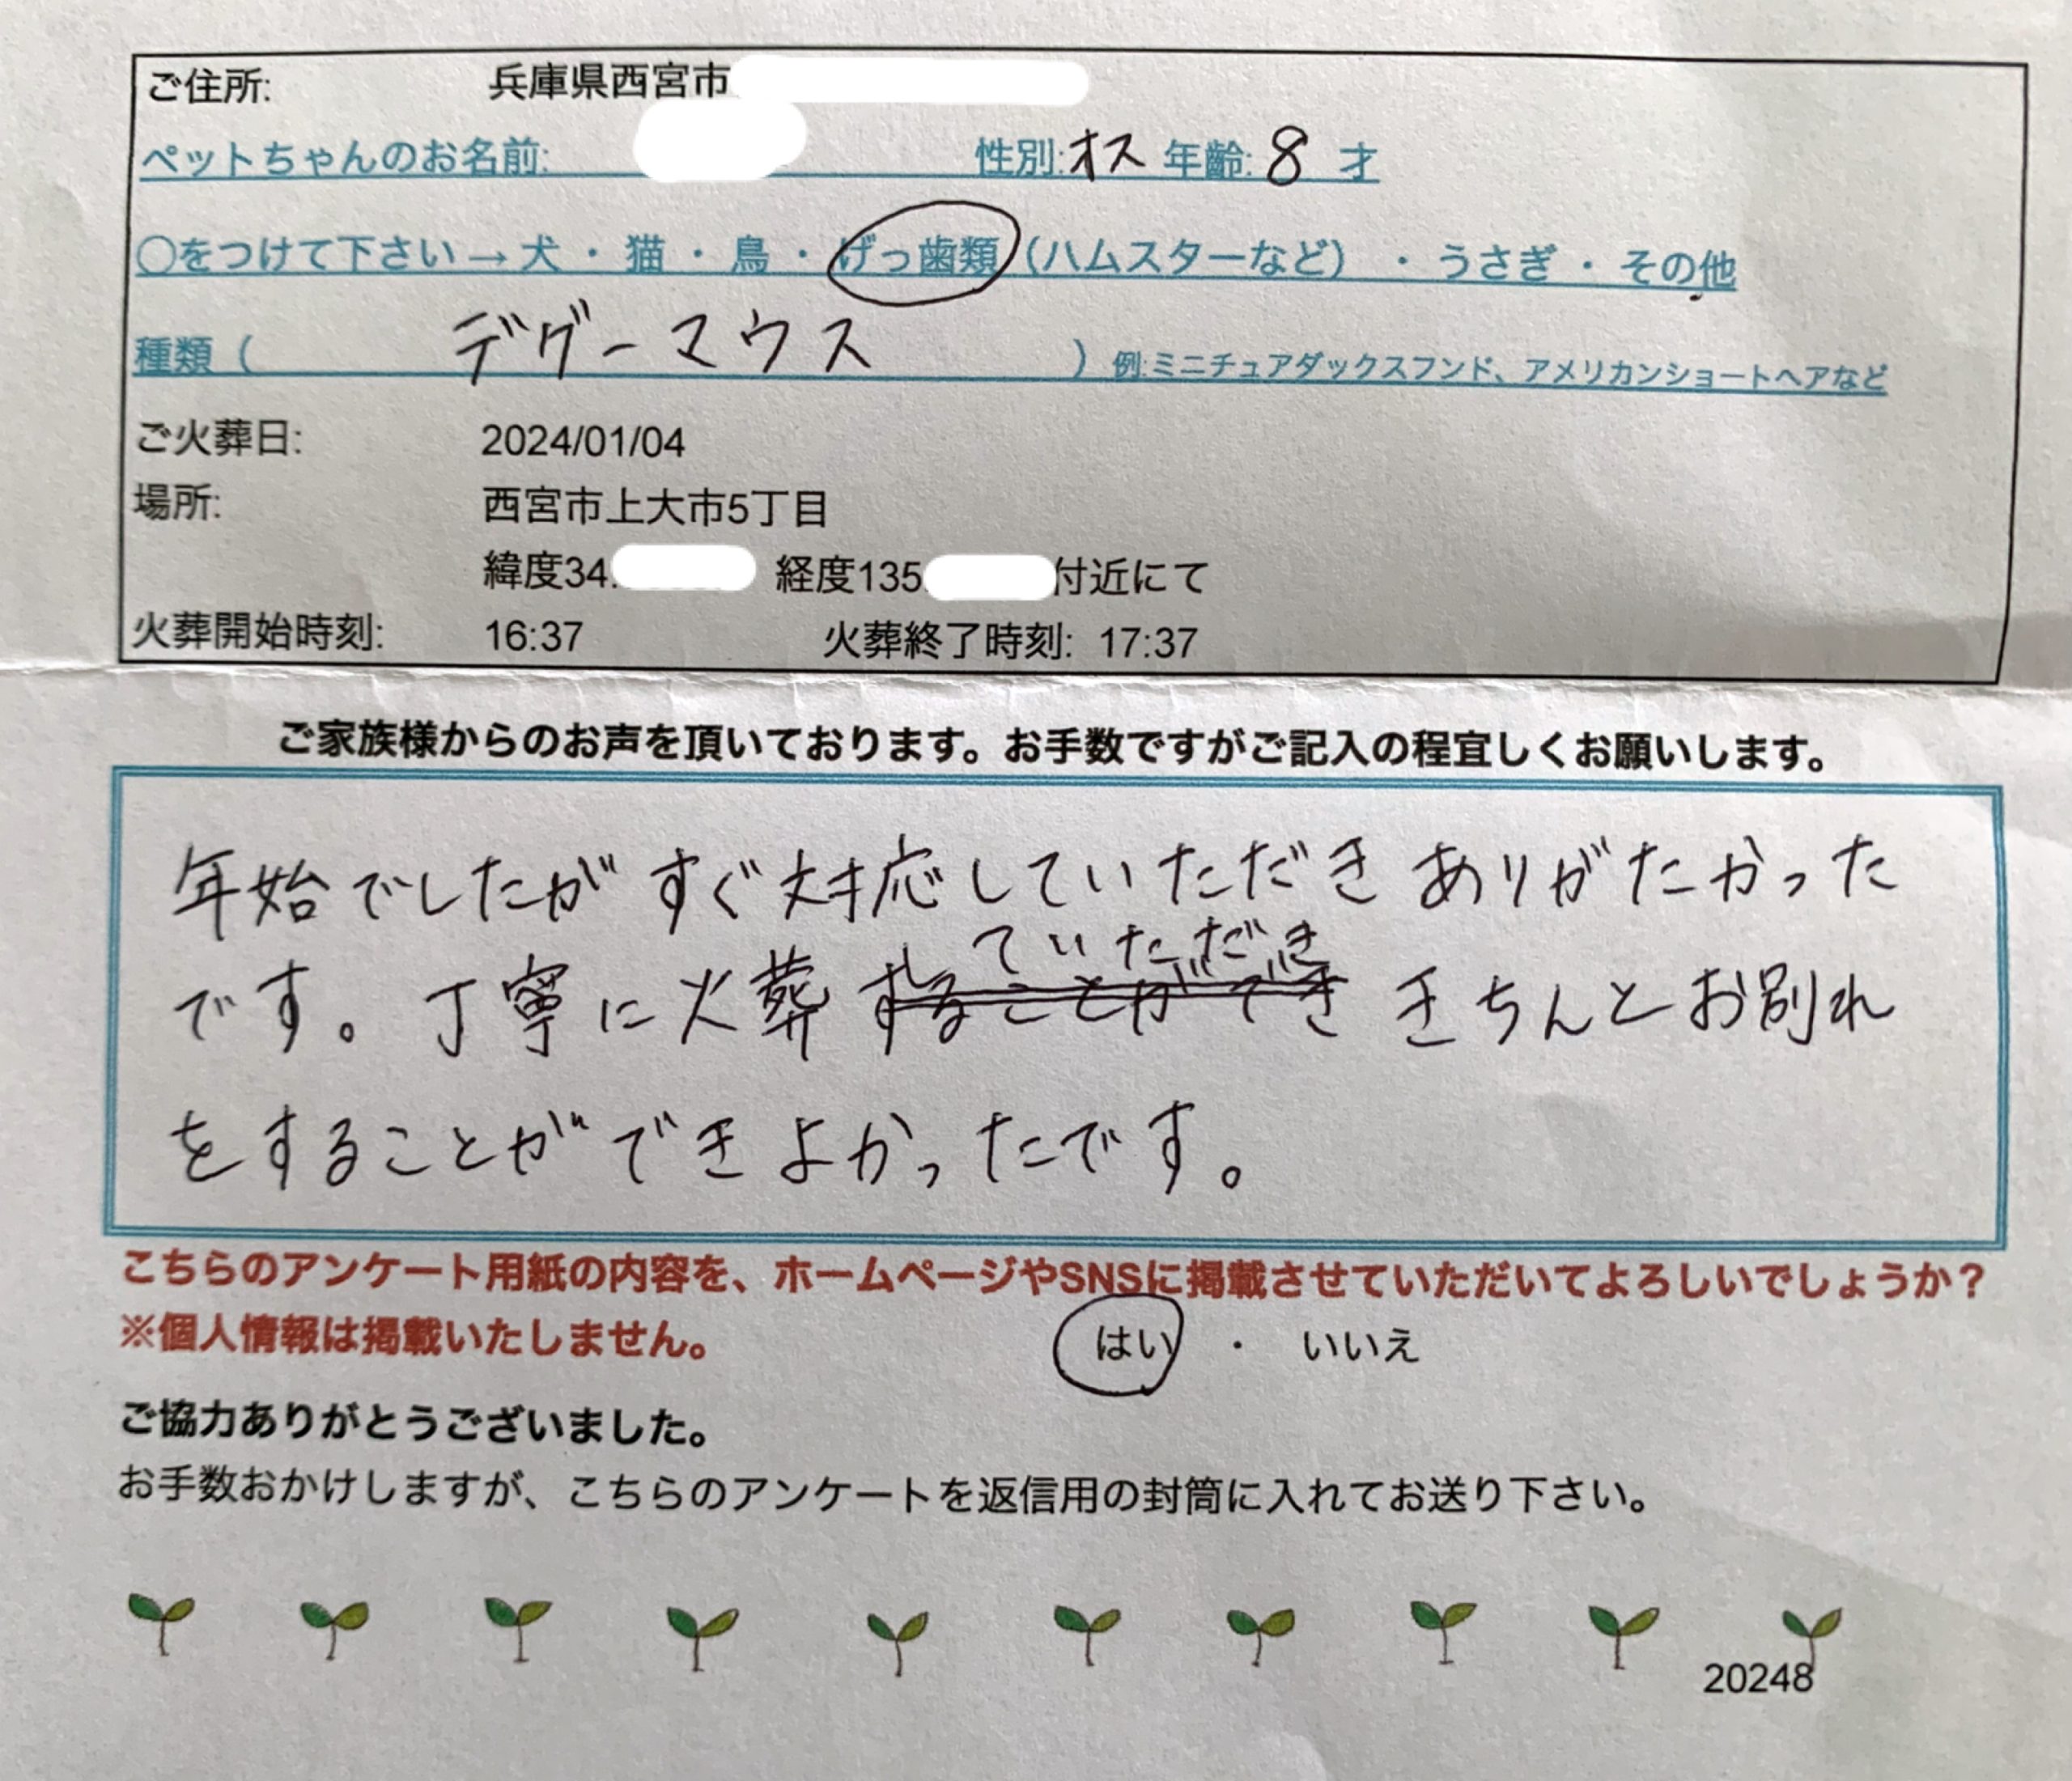 ご住所: 兵庫県西宮市
ペットちゃんのお名前: 性別:オス 年齢:8才
○をつけて下さい→犬・猫・鳥・げっ歯類（ハムスターなど）・うさぎ・その他
種類（ デグーマウス ）例:ミニチュアダックスフンド、アメリカンショートヘアなど
ご火葬日: 2024/01/04
場所: 西宮市上大市5丁目
緯度34. 経度135. 付近にて
火葬開始時刻: 16:37 火葬終了時刻: 17:37
ご家族様からのお声を頂いております。お手数ですがご記入の程宜しくお願いします。
年始でしたがすぐ対応していただきありがたかった
していただき
です。丁寧に火葬することができきちんとお別れ
をすることができよかったです。
こちらのアンケート用紙の内容を、ホームページやSNSに掲載させていただいてよろしいでしょうか？
※個人情報は掲載いたしません。 はい ・ いいえ
ご協力ありがとうございました。
お手数おかけしますが、こちらのアンケートを返信用の封筒に入れてお送り下さい。
20248